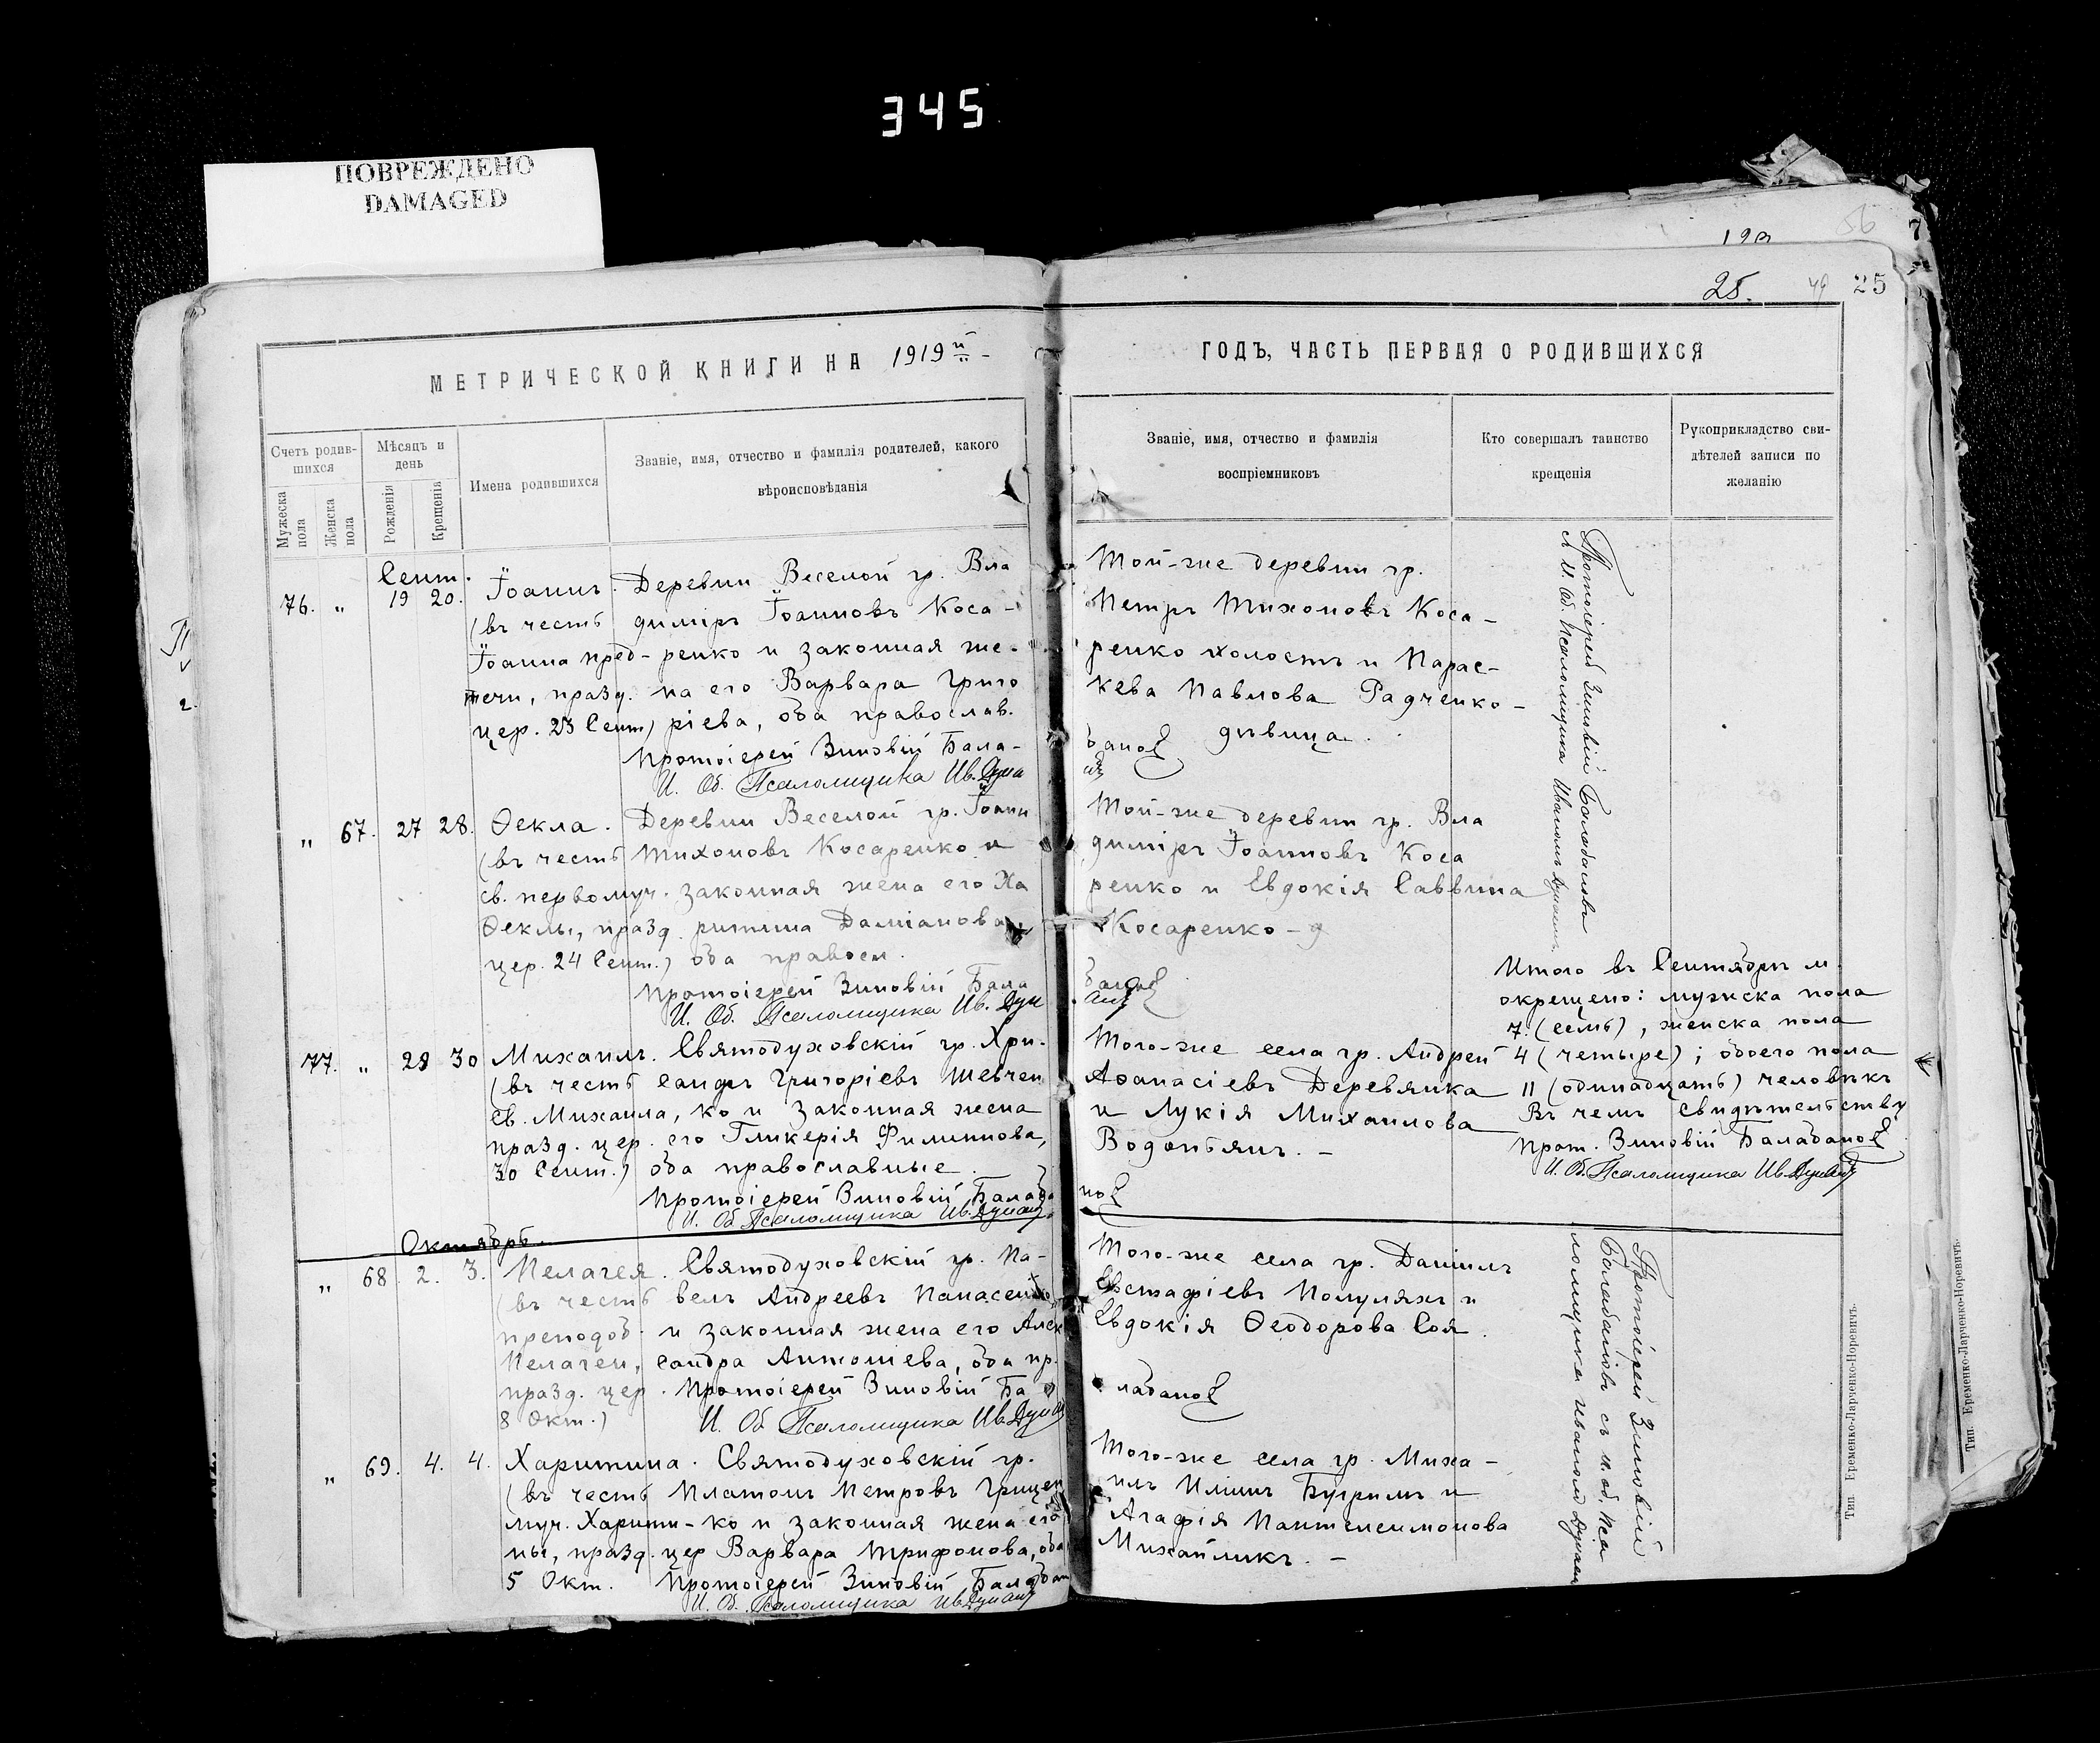 345
ПОВРЕЖДЕНО
DAMAGED
25.
25
МЕТРИЧЕСКОЙ КНИГИ НА 1919й
ГОДЪ, ЧАСТЬ ПЕРВАЯ О РОДИВШИХСЯ
Счетъ родив-
шихся
Мужеска пола
Женска пола
Мѣсяцъ и
день
Рожденія
Крещенія
Имена родившихся
Званіе, имя, отчество и фамилія родителей, какого
вѣроисповѣданія
Званіе, имя, отчество и фамилія
воспріемниковъ
Кто совершалъ таинство
крещенія
Рукоприкладство сви-
дѣтелей записи по
желанію
Сент.
76. " 19 20.
Іоаннъ.
(въ честь
Іоанна пред-
течи, празд.
цер. 23 Сент)
Деревни Веселой гр. Вла
диміръ Іоанновъ Коса-
ренко и законная же-
на его Варвара Григо
ріева, оба православ.
Протоіерей Зиновій Бала-
И. Об. Псаломщика Ив. Дуна
Той-же деревни гр.
Петръ Тихоновъ Коса-
ренко холостъ и Парас-
кева Павлова Радченко-
дѣвица.
банов
Протоіерей Зиновій Балабановъ
И. Об. Псаломщика Иванъ
" 67. 27 28.
Ѳекла.
(въ честь
св. первомуч.
Ѳеклы, празд.
цер. 24 Сент.)
Деревни Веселой гр. Іоанн
Тихоновъ Косаренко и
законная жена его Ха
ритина Даміанова,
оба правосл.
Протоіерей Зиновій Бала
И. Об. Псаломщика Ив. Дун
Той-же деревни гр. Вла
диміръ Іоанновъ Коса
ренко и Евдокія Саввина
Косаренко-д
банов
Итого въ Сентябрѣ м.
окрещено: мужска пола
7. (семь), женска пола
4 (четыре); обоего пола
11 (одинадцать) человѣкъ
Въ чемъ свидѣтельству
Прот. Зиновій Балабанов
И. Об. Псаломщика Ив.
77. " 28 30
Михаилъ.
(въ честь
Св. Михаила,
празд. цер.
30 Сент.)
Святодуховскій гр. Хри-
сандръ Григоріевъ Шевчен
ко и законная жена
его Гликерія Филиппова,
оба православные.
Протоіерей Зиновій Балаба
И. Об. Псаломщика Ив.
Того-же села гр. Андрей
Аѳанасіевъ Деревянка
и Лукія Михаилова
Водопьянъ. -
нов
Октябрь.
" 68. 2. 3.
Пелагея.
(въ честь
преподоб.
Пелагеи,
празд. цер.
8 Окт.)
Святодуховскій гр. Па-
велъ Андреевъ Панасенко
и законная жена его Алек
сандра Антоніева, оба пр.
Протоіерей Зиновій Ба
И. Об Псаломщика Ив.
Того-же села гр. Даніилъ
Евстафіевъ Полуляхъ и
Евдокія Ѳеодорова Соя.
лабанов
Протоіерей Зиновій
Балабановъ съ и. об. Пса
ломщика
" 69. 4. 4.
Харитина.
(въ честь
муч. Харити-
ны, празд. цер
5 Окт.
Святодуховскій гр.
Платонъ Петровъ Грицен
ко и законная жена его
Варвара Трифонова, оба
Протоіерей Зиновій Балабан
И. Об. Псаломщика Ив.
Того-же села гр. Миха-
илъ Иліинъ Бугримъ и
Агафія Пантелеимонова
Михайликъ. -
Тип. Еременко-Ларченко-Норевичъ.
Тип. Еременко-Ларченко-Норевичъ.